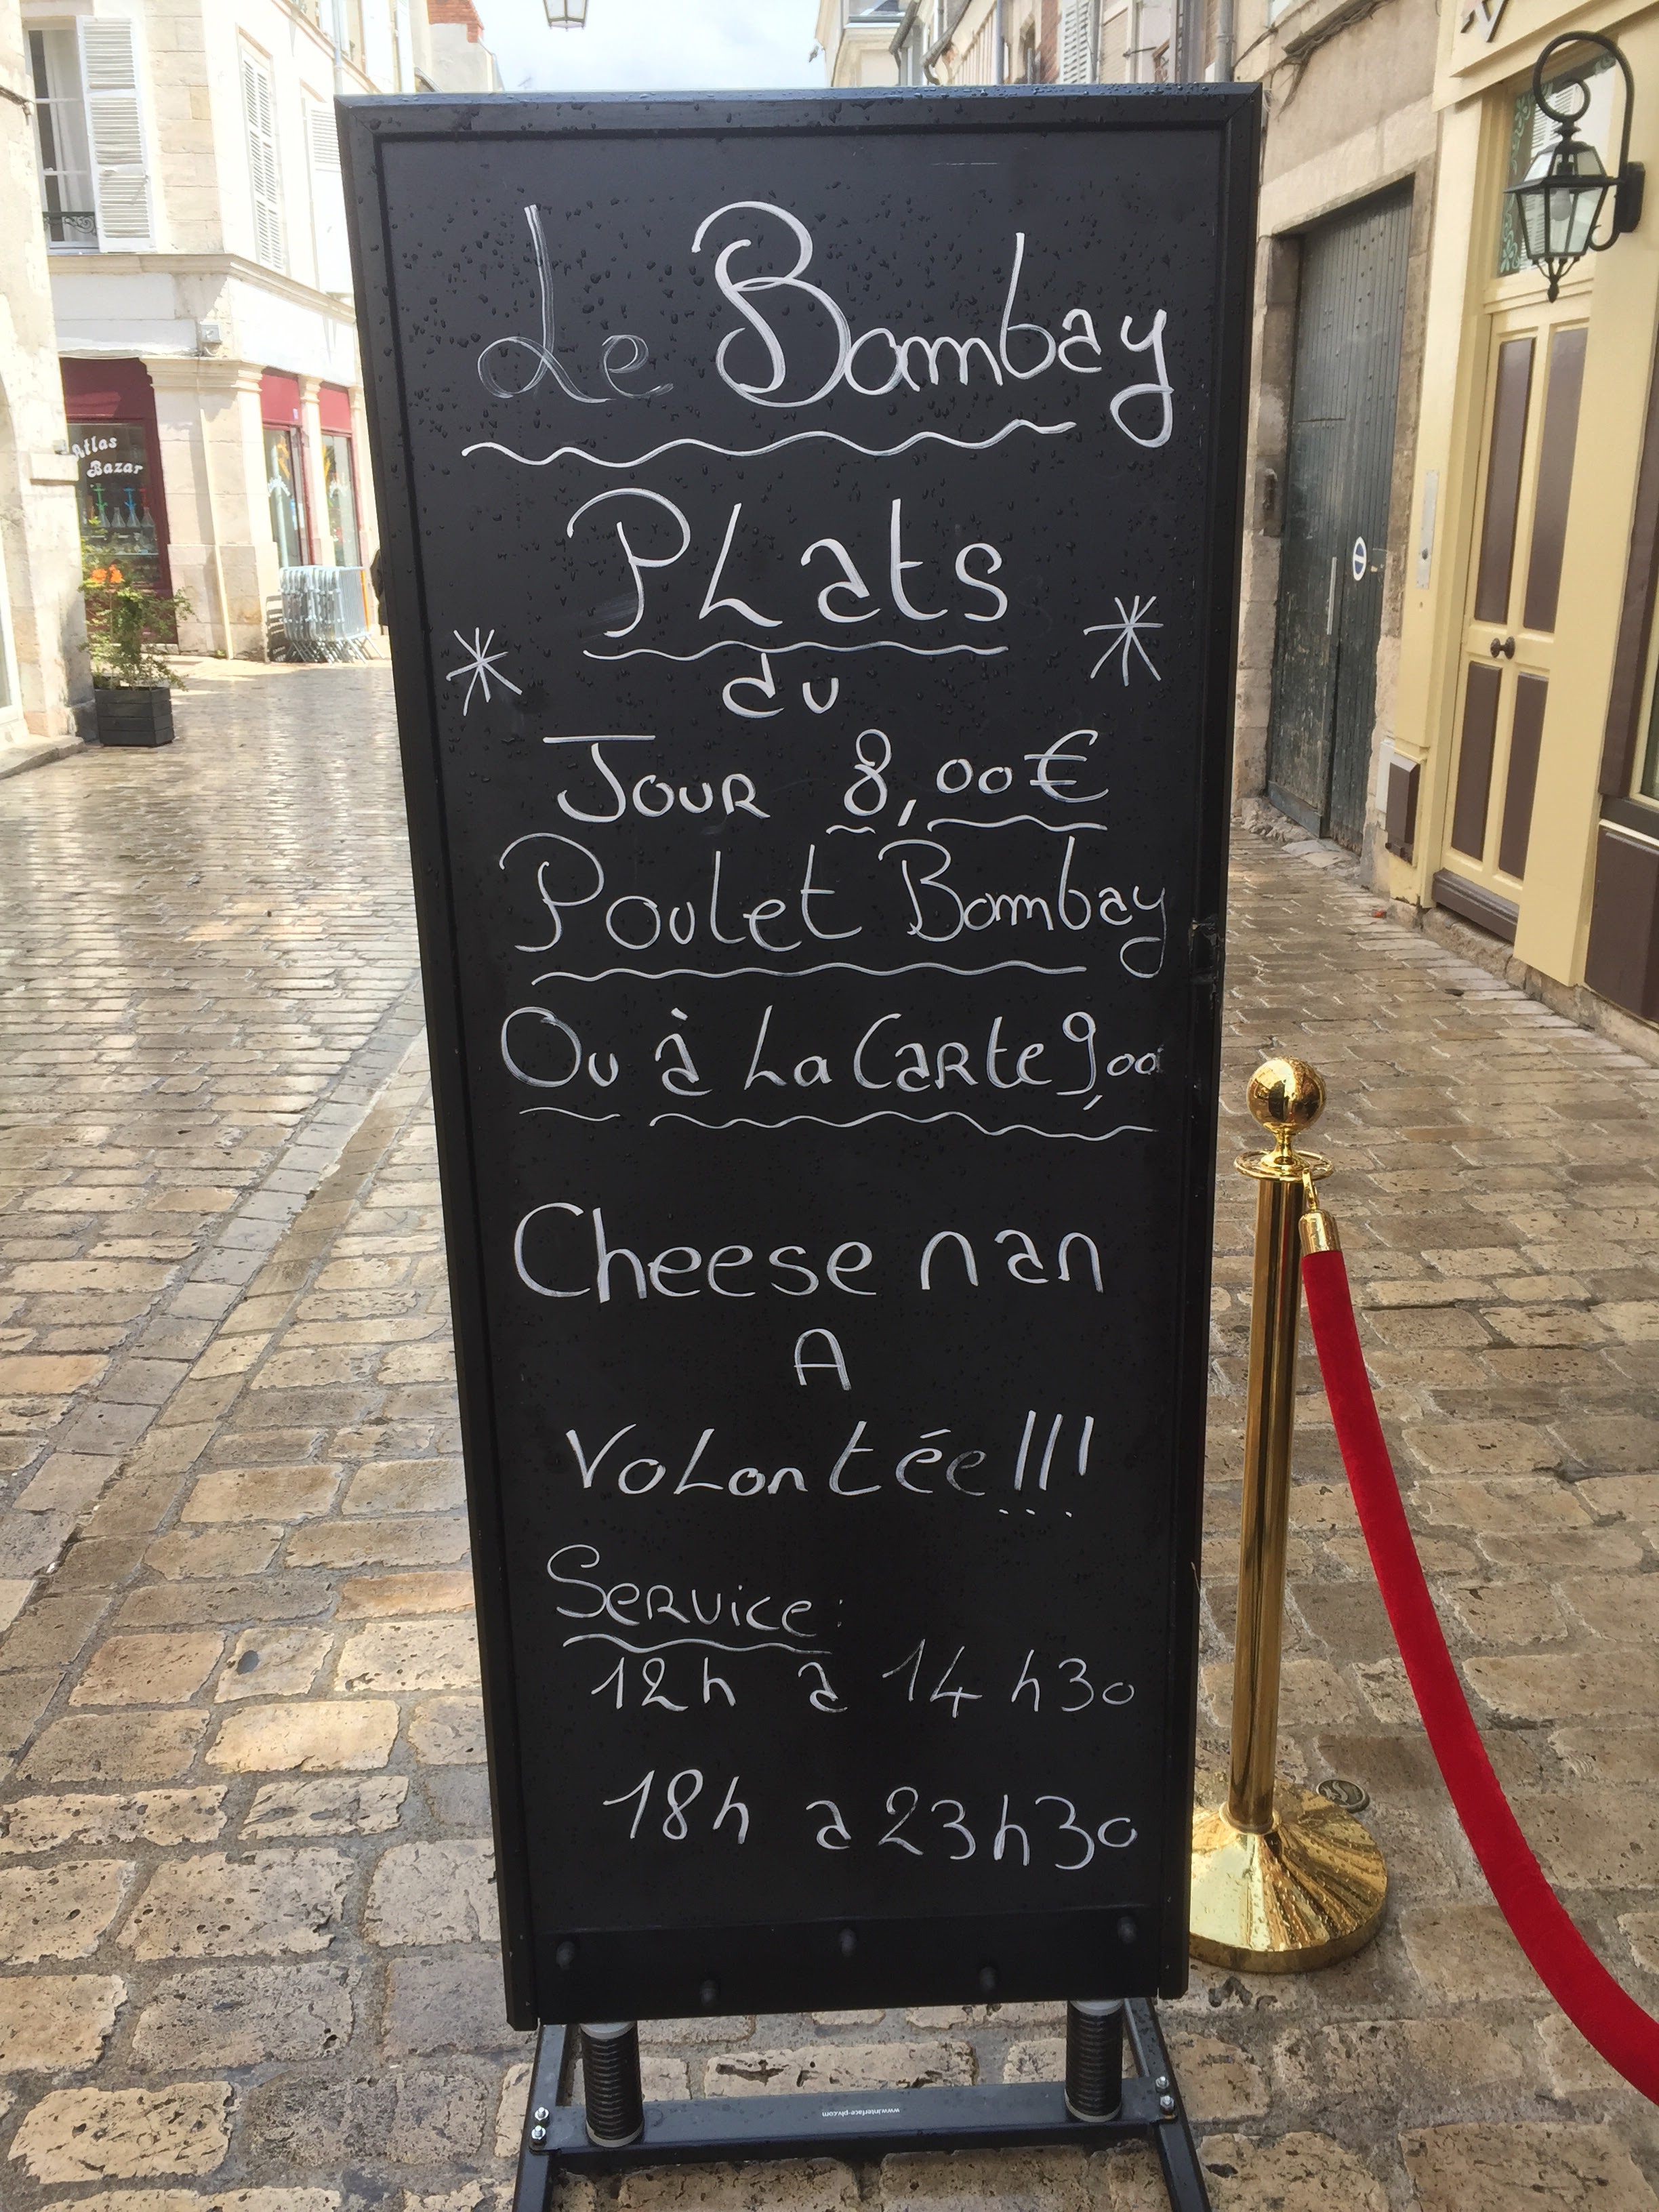 Le Bombay
PLats
du
JOUR 8,00€
Poulet Bombay
Ou à La CaRte 9,00
Cheese nan
A
VoLontée!!!
SeRvice:
12h à 14h30
18h a 23h30
Atlas
Bazar
www.interface-plv.com